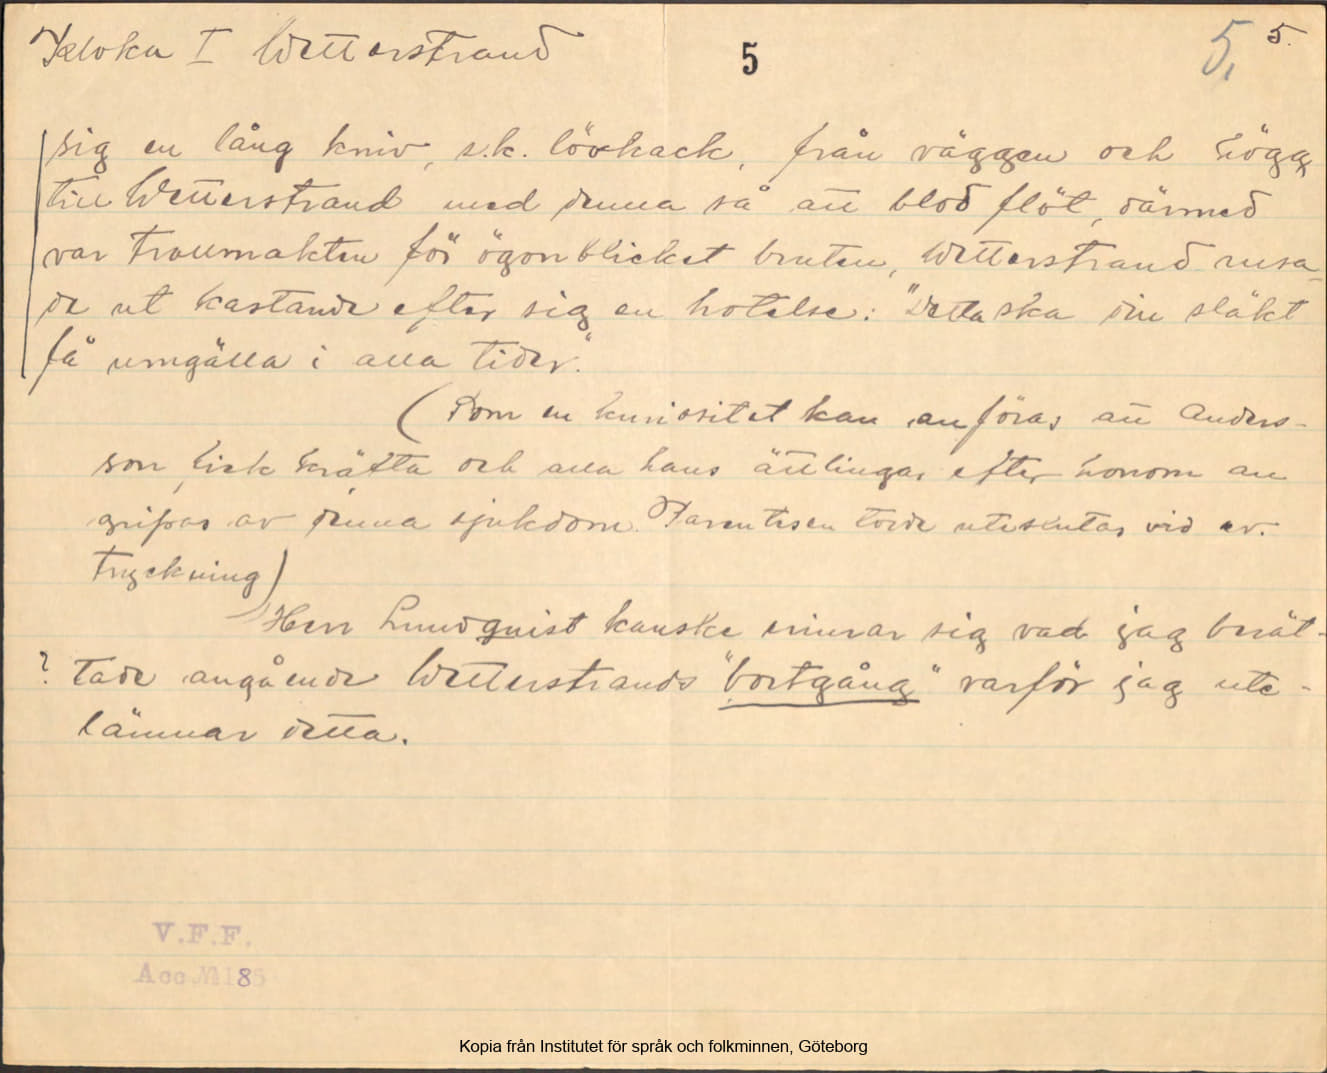 Kloka I Wetterstrand 5 5, 5.
sig en lång kniv, s.k. lövhack, från väggen och högg
till Wetterstrand med denna så att blod flöt, därmed
var trollmakten för ögonblicket bruten, Wetterstrand rusa-
de ut kastande efter sig en hotelse: "Detta ska din släkt
få umgälla i alla tider."
(Som en kuriositet kan anföras att Anders-
son fick kräfta och alla hans ättlingar efter honom an
gripas av denna sjukdom. Parentesen torde uteslutas vid ev.
tryckning)
Herr Lundquist kanske erinrar sig vad jag berät-
? tade angående Wetterstrands "bortgång" varför jag ute-
lämnar detta.
V.F.F.
Acc № 185
Kopia från Institutet för språk och folkminnen, Göteborg